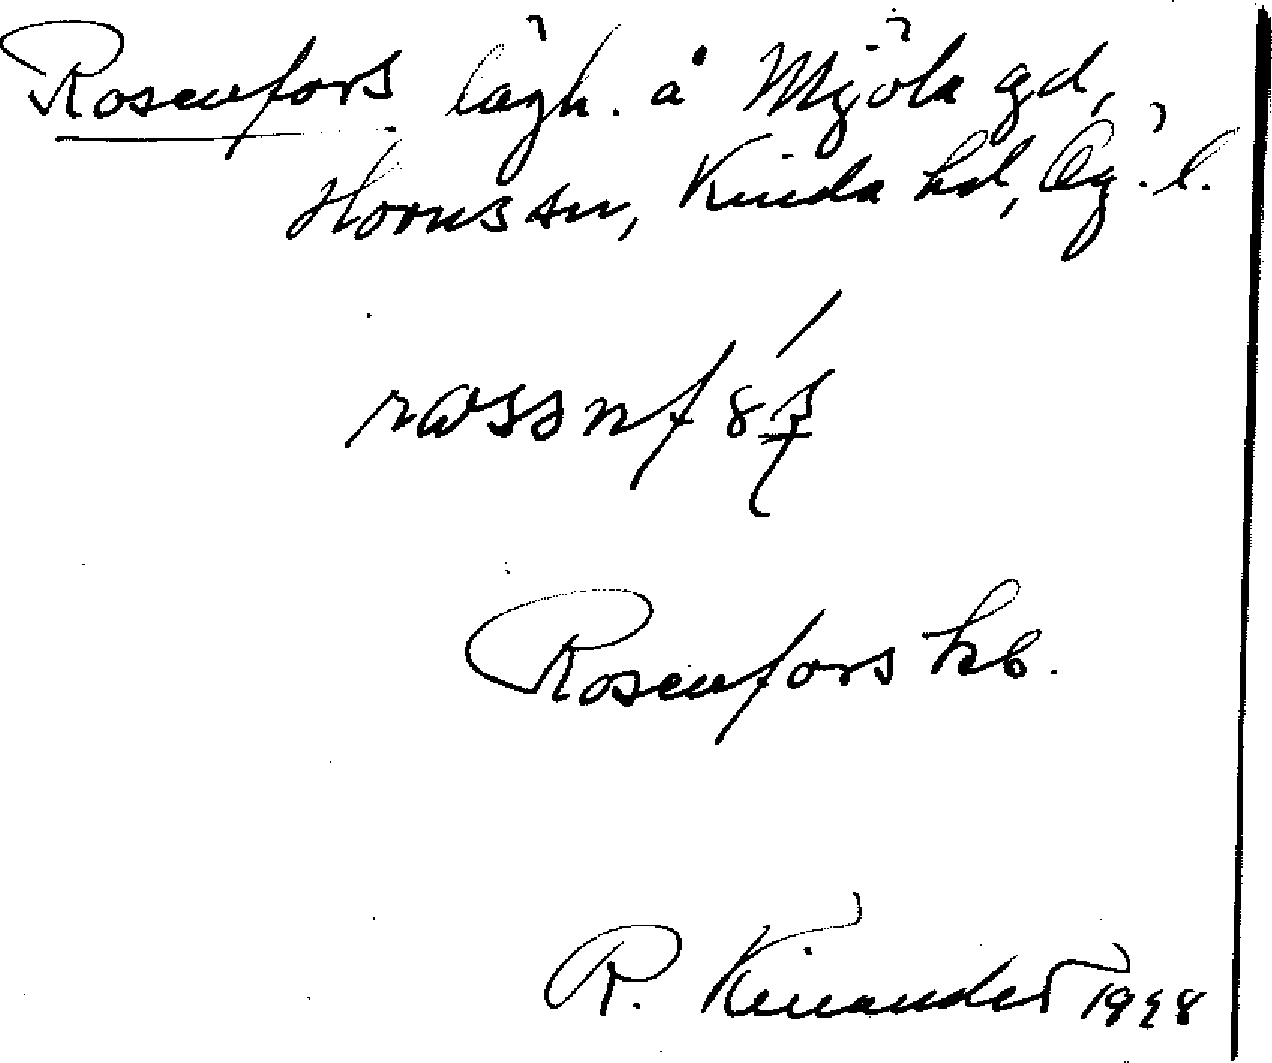 Rosenfors lägh. å Mjöla gd,
Horns sn, Kinda hd, Ög. l.
Rosenfors kb.
R. Kinander 1928